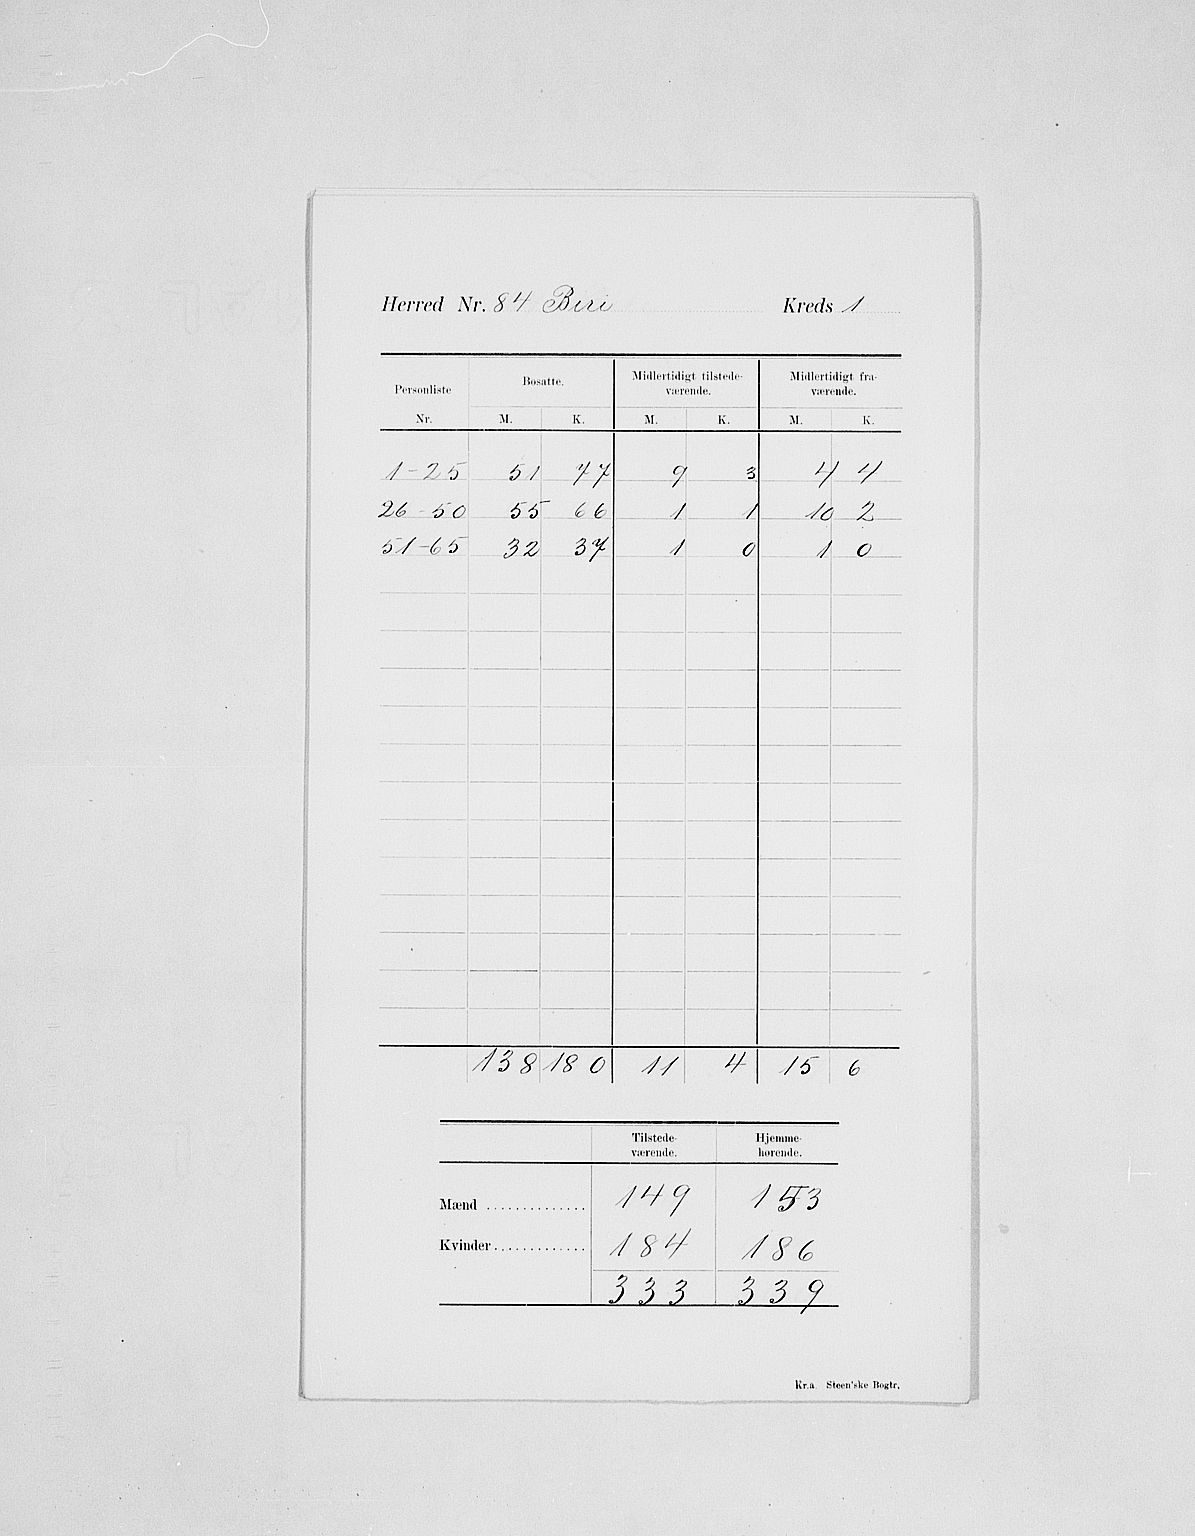 Herred Nr. 84 Biri Kreds 1
Personliste Nr. Bosatte. Midlertidigt tilstede- værende. Midlertidigt fra- værende.
M. K. M. K. M. K.
1-25 51 77 9 3 4 4
26-50 55 66 1 1 10 2
51-65 32 37 1 0 1 0
138 180 11 4 15 6
Tilstede- værende. Hjemme- hørende.
Mænd .............. 149 153
Kvinder............. 184 186
333 339
Kr.a. Steen'ske Bogtr.